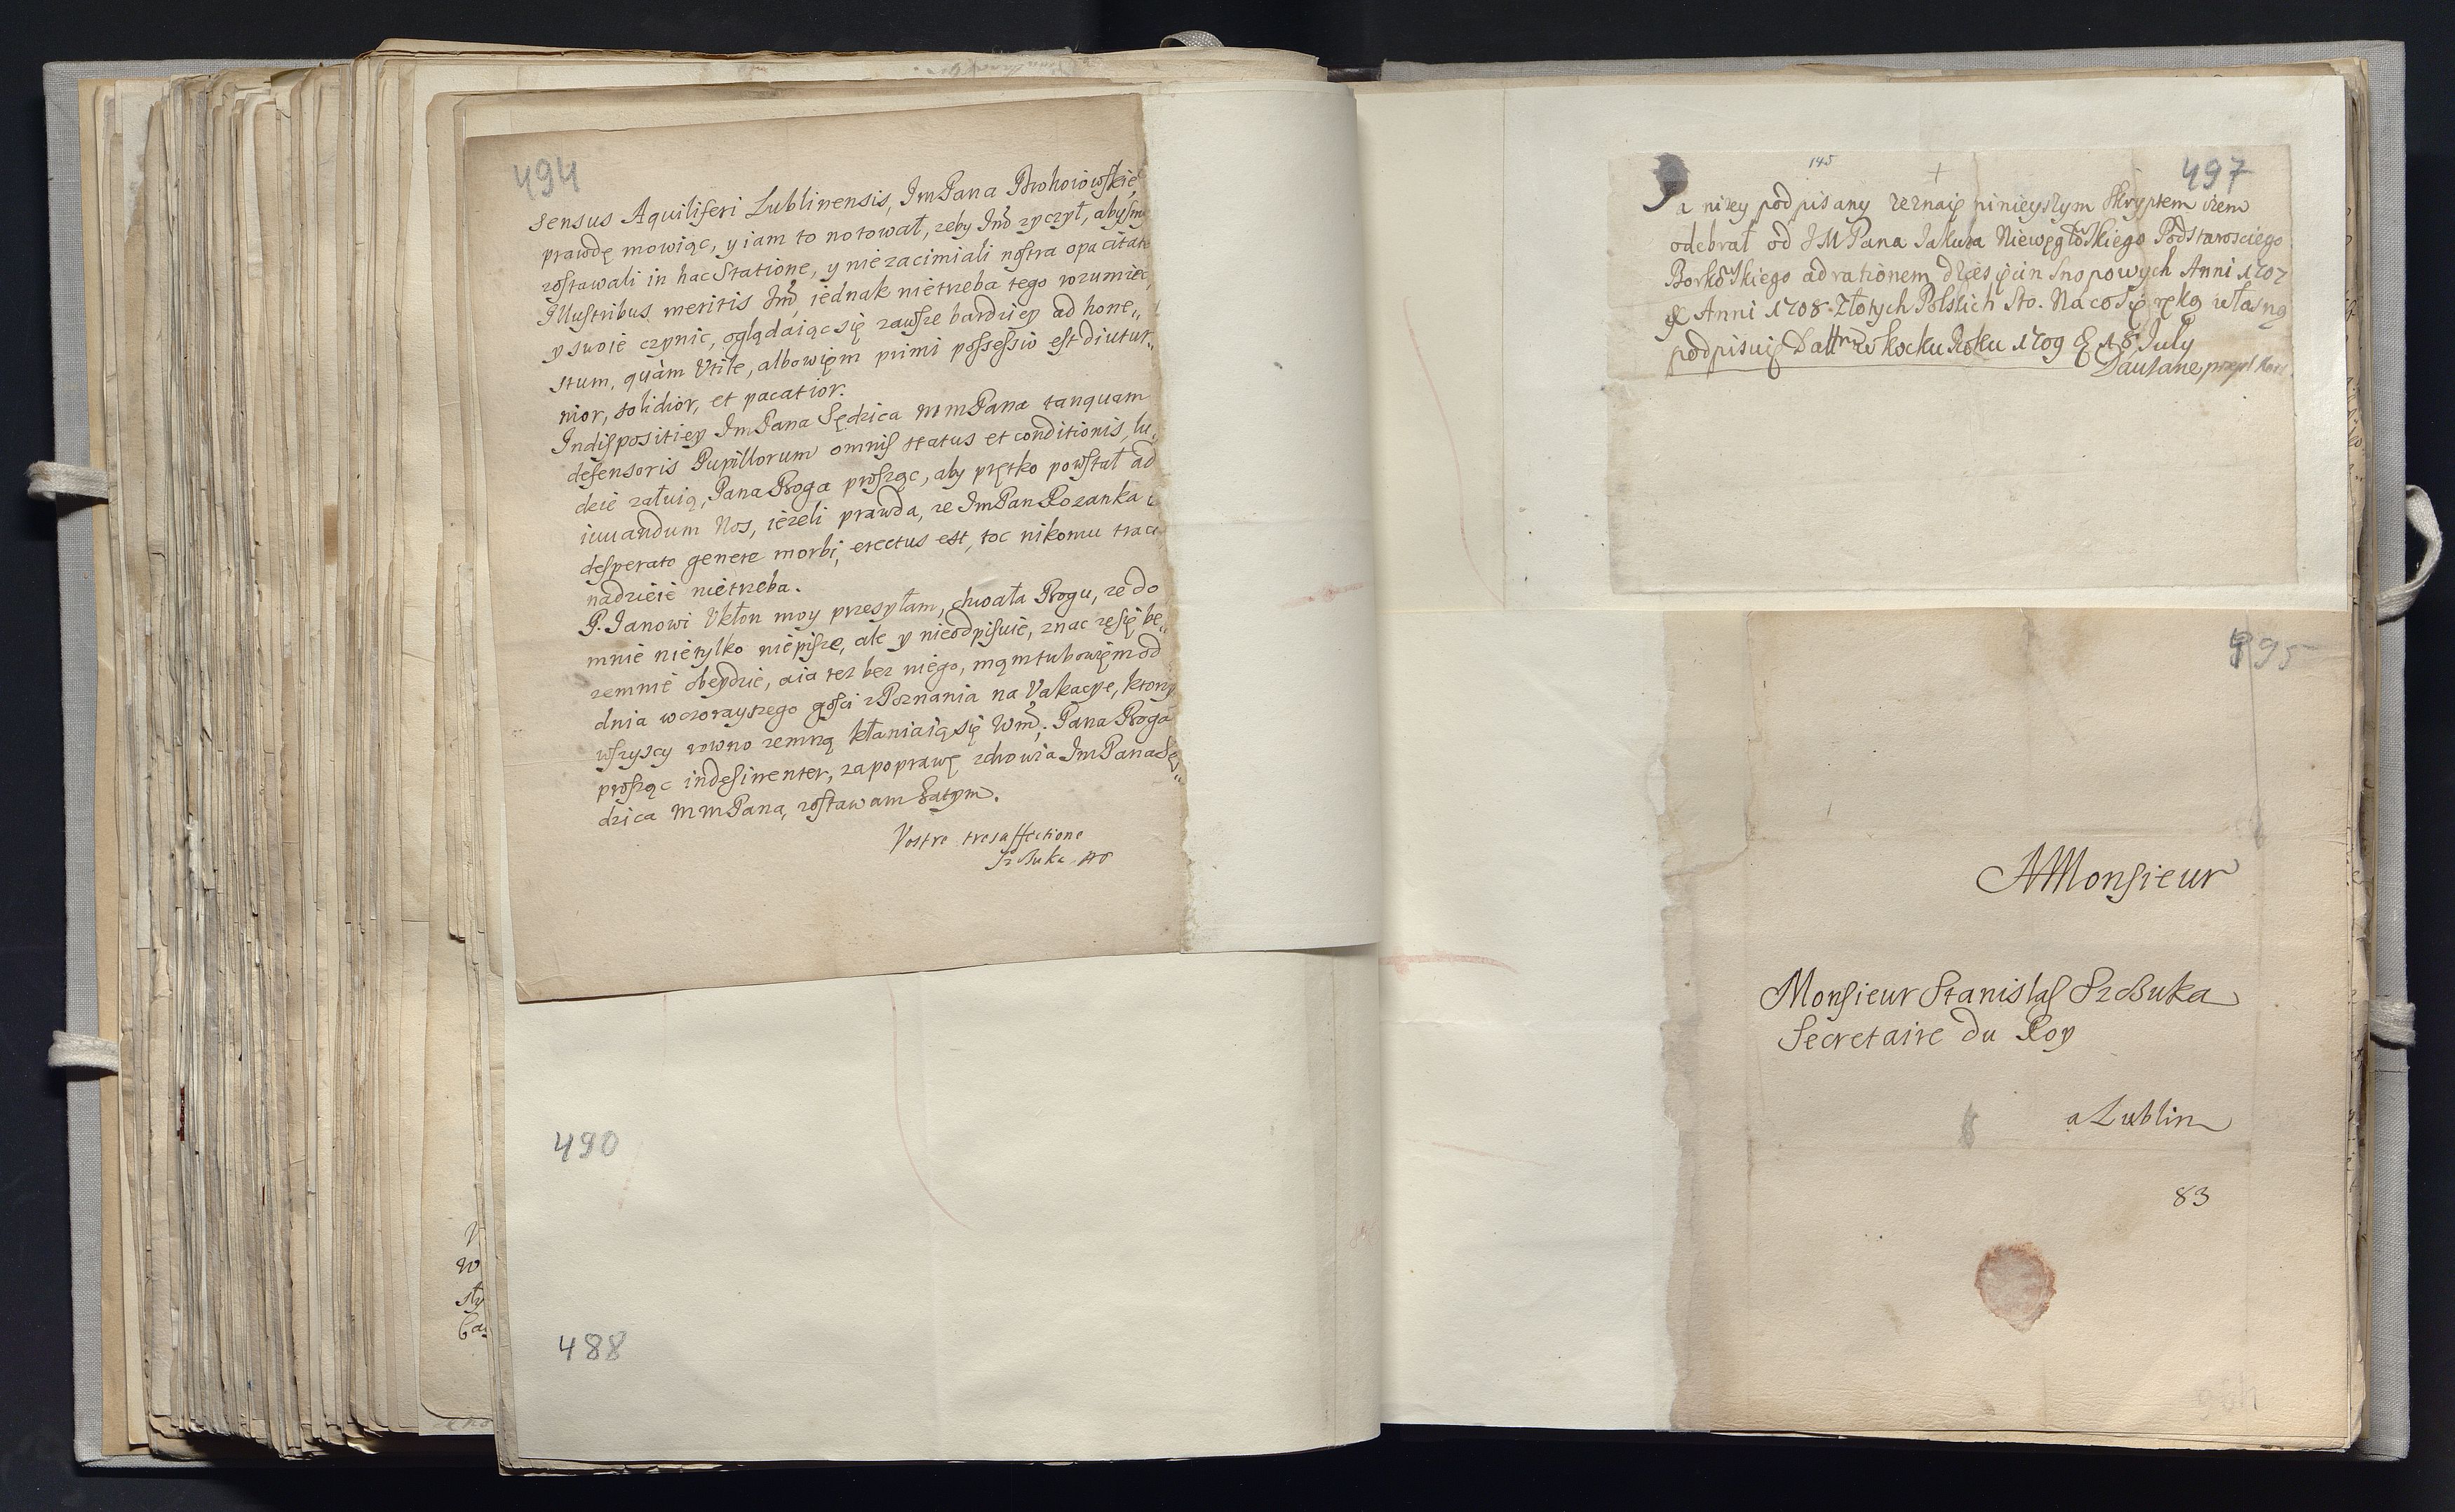 494
sensus Aquiliferi Lublinensis, JmPana
prawdę mowiąc, y iam to notował, zeby Jmć zyczył, abysmy
zostawali in hac Statione, y niezacimiali nostra opacitate
Illustribus meritis Jmć, iednak nietrzeba tego rozumiec,
y swoie czynic, oglądaiąc się zawsze bardziey ad hone„
stum, quàm Utile, albowięm primi possessio est diutur„
nior, solidior, et pacatior.
Indispositiey JmPana Sędzica MmPana tanquam
defensoris Pupillorum omnis status et conditionis, lu„
dzie załuią, Pana Boga prosząc, aby prętko powstał ad
iuuandum Nos, iezeli prawda, ze JmPan Rozanka
desperato genere morbi, erectus est, toc nikomu trac
nadzieie nietrzeba.
P. Janowi Ukłon moy przesyłam, chwała Bogu, ze do
mnie nietylko niepisze, ale y nieodpisuie, znac ze się be„
zemnie obeydzie, aia tez bez niego, mąm tu bowięm od
dnia wczorayszego gosci z Poznania na Vakacye, ktorzy
wszyscy rowno zemną kłaniaią się Wmć; Pana Boga
prosząc indesinenter, za poprawę zdrowia JmPana Sę„
dzica MmPana, zostawam zatym.
Vostre tresaffectione
Szczuka
490
488
145
497
Ja nizey podpisany zeznaię ninieyszym Skryptem izem
odebrał od JMPana Jakuba Niewęgłowskiego Podstarosciego
Borkowskiego ad rationem dziesięcin snopowych Anni 1707
& Anni 1708 Złotych Polskich Sto. Na co się ręką własną
podpisuię Datt w Kocku Roku 1709 18 July
495
AMonsieur
Monsieur Stanislas Szczuka
Secretaire du Roy
a Lublin
83
496